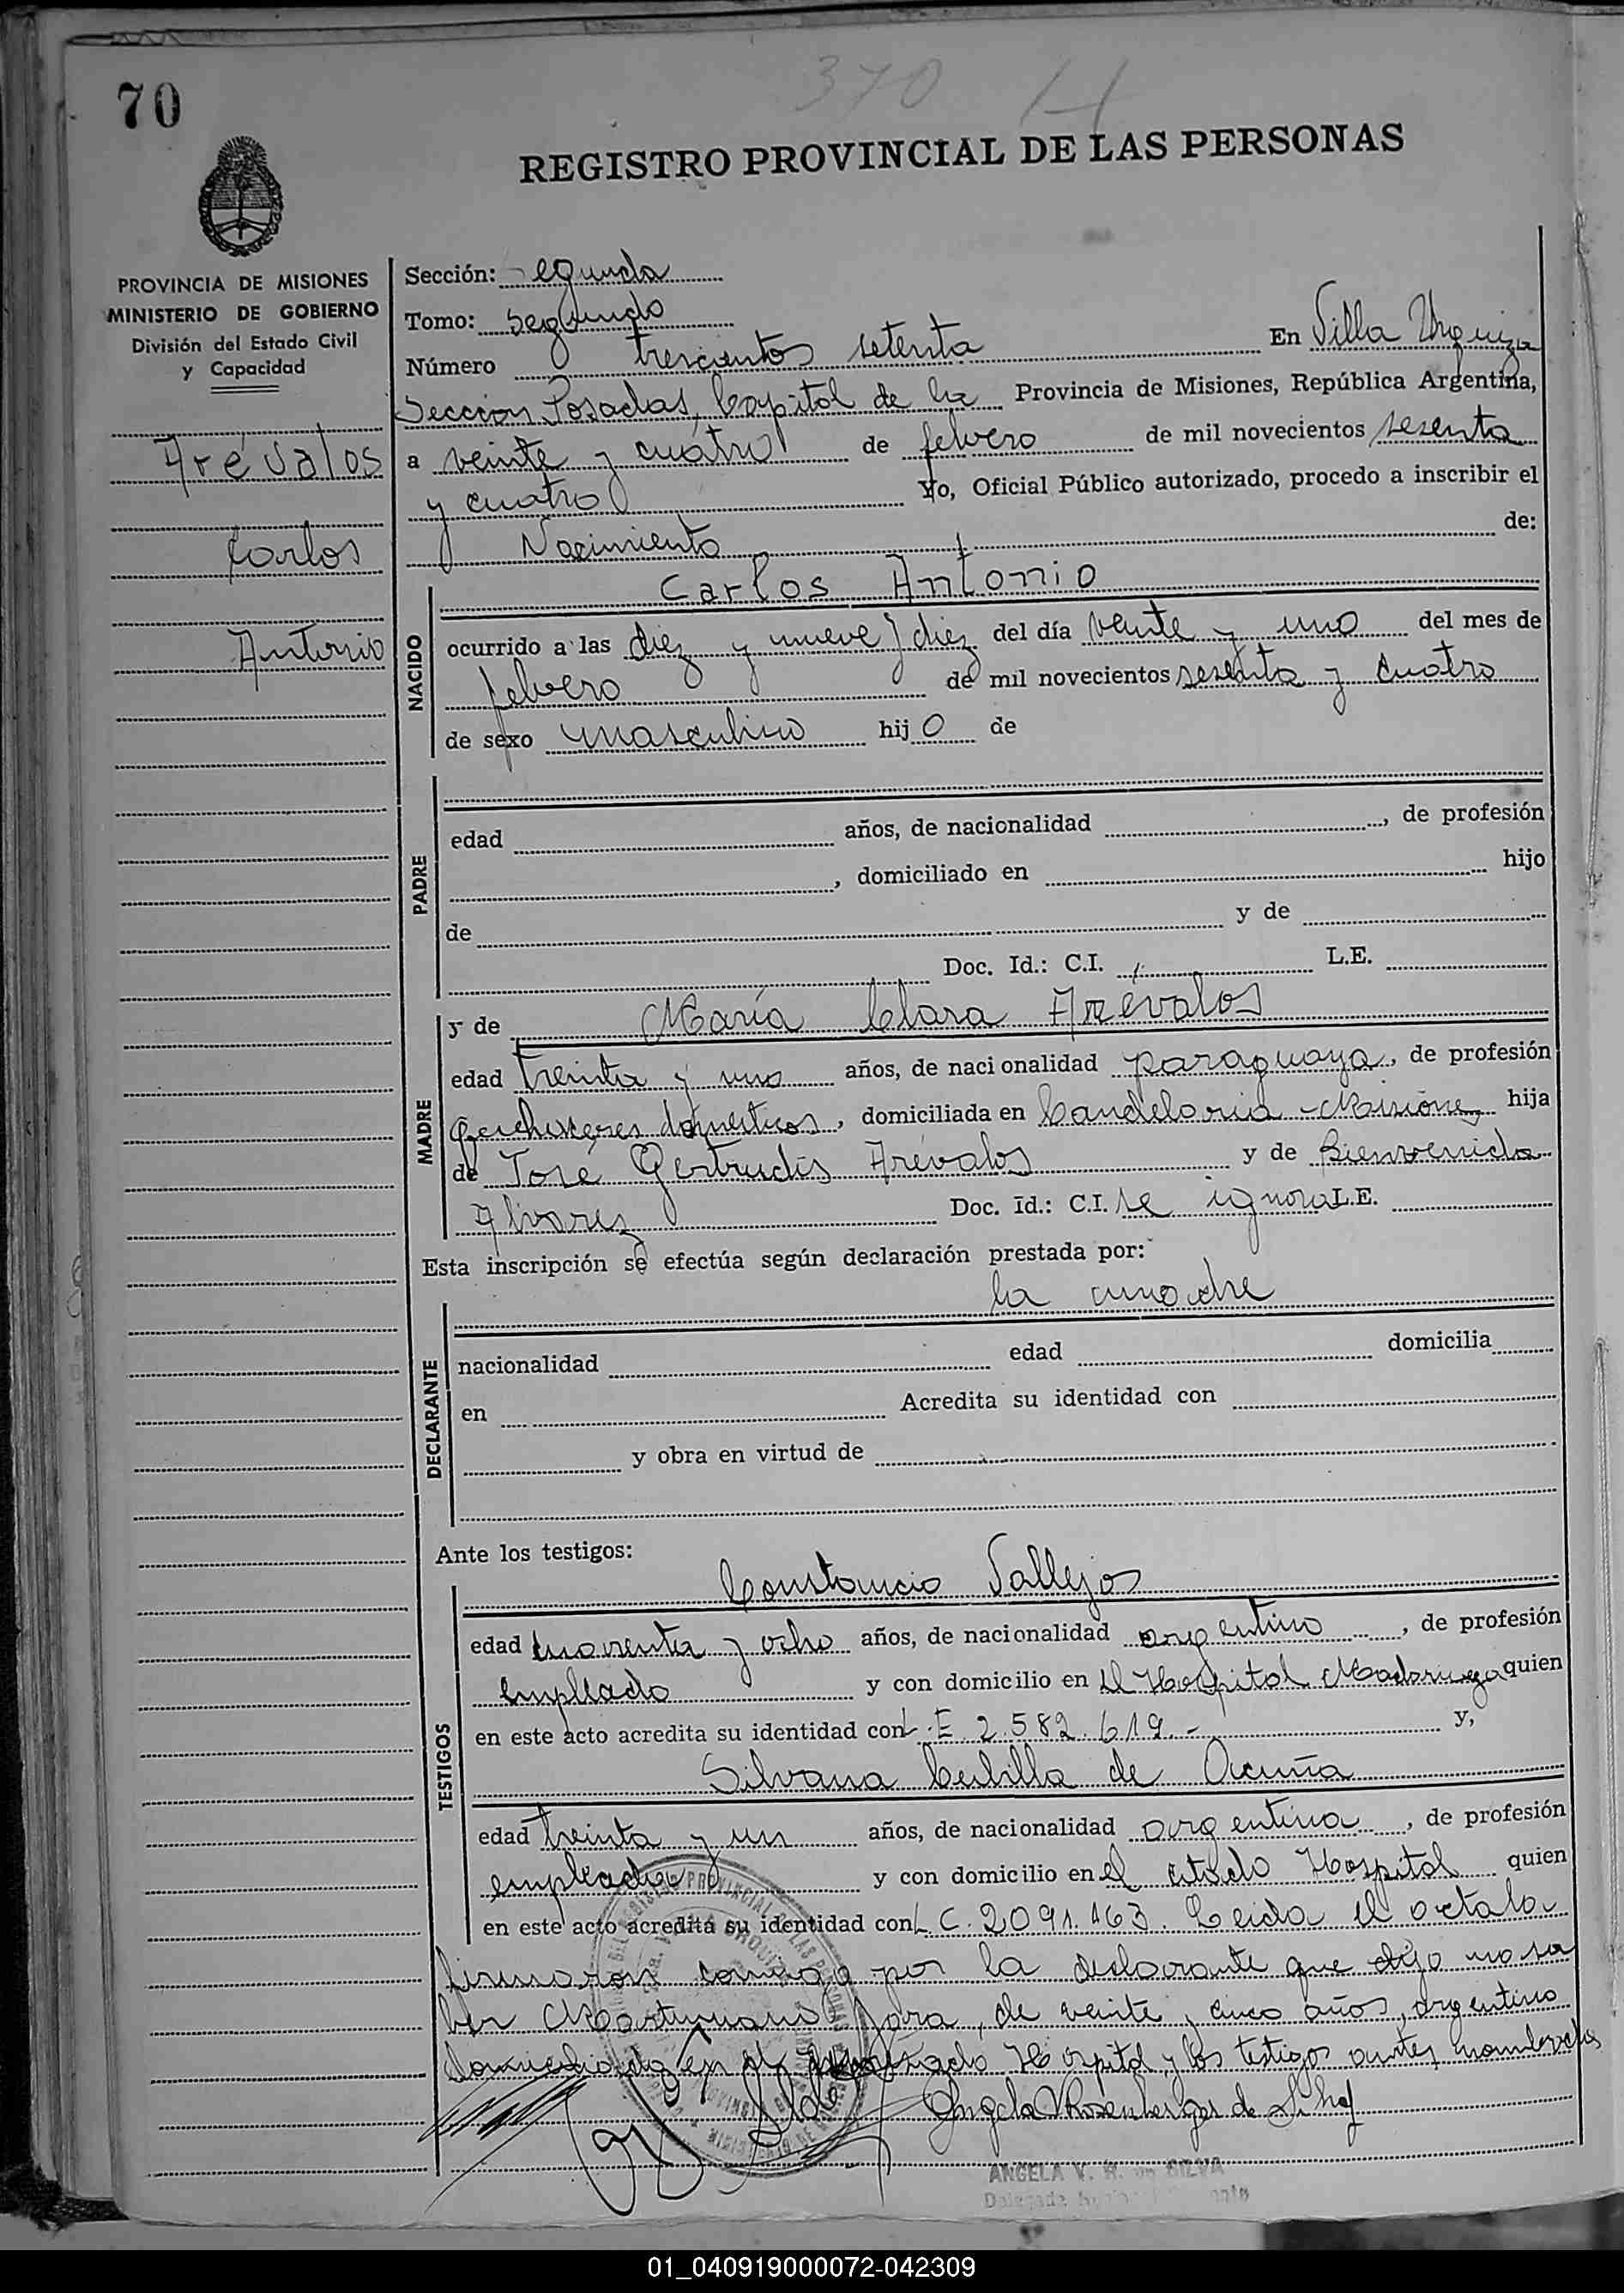 370 H
70
REGISTRO PROVINCIAL DE LAS PERSONAS
PROVINCIA DE MISIONES
MINISTERIO DE GOBIERNO
División del Estado Civil
y Capacidad
Arévalos
Carlos
Antonio
Sección: Segunda
Tomo: Segundo
Número trescientos setenta En Villa Urquiza
Sección Posadas, Capital de la Provincia de Misiones, República Argentina,
a veinte y cuatro de febrero de mil novecientos sesenta
y cuatro Yo, Oficial Público autorizado, procedo a inscribir el
Nacimiento de:
NACIDO
Carlos Antonio
ocurrido a las diez y nueve y diez del día veinte y uno del mes de
febrero de mil novecientos sesenta y cuatro
de sexo masculino hijo de
PADRE
edad años, de nacionalidad , de profesión
, domiciliado en hijo
de y de
Doc. Id.: C.I. L.E.
MADRE
y de María Clara Arévalos
edad treinta y uno años, de nacionalidad paraguaya, de profesión
quehaceres domésticos, domiciliada en Candelaria - Misiones hija
de José Gertrudis Arévalos y de Bienvenida
Alvarez Doc. Id.: C.I. se ignora L.E.
Esta inscripción se efectúa según declaración prestada por:
la madre
DECLARANTE
nacionalidad edad domicilia
en Acredita su identidad con
y obra en virtud de
Ante los testigos:
TESTIGOS
Constancio Vallejos
edad cuarenta y ocho años, de nacionalidad argentino , de profesión
empleado y con domicilio en el Hospital Madariaga quien
en este acto acredita su identidad con L.E 2.582.619.- y,
Silvana de Acuña
edad treinta y un años, de nacionalidad argentina , de profesión
empleada y con domicilio en el citado Hospital quien
en este acto acredita su identidad con L.C. 2.091.163. Leida el acta la
firmaron conmigo por la declarante que dijo no sa
ber Martiniano Jara, de veinte y cinco años, argentino
domiciliado en el Hospital y los testigos antes nombrados
Angela V Rosenberger de Silva
ANGELA V. R. de SILVA
01_040919000072-042309